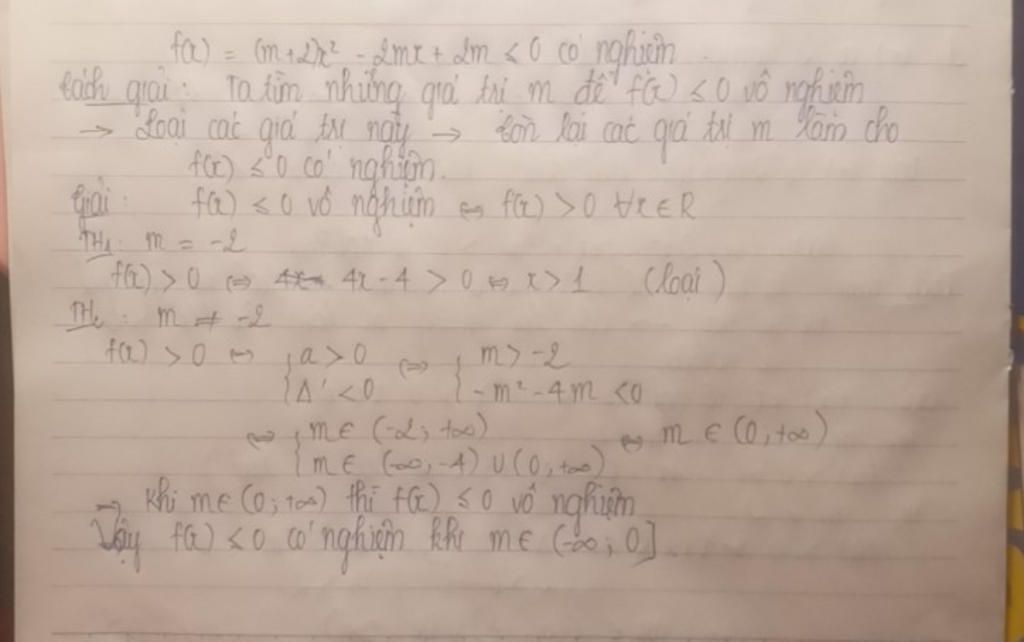 f(x) = (m+2)x² - 2mx + 2m ≤ 0 có nghiệm.
Cách giải: Ta tìm những giá trị m để f(x) ≤ 0 vô nghiệm
→ Loại các giá trị này → Còn lại các giá trị m làm cho
f(x) ≤ 0 có nghiệm.
Giải: f(x) ≤ 0 vô nghiệm ⇔ f(x) > 0 ∀x ∈ R
TH₁: m = -2
f(x) > 0 ⇔ 4x - 4 > 0 ⇔ x > 1 (loại)
TH₂: m ≠ -2
f(x) > 0 ⇔ { a > 0 ⇔ { m > -2
{ Δ' < 0 { -m² - 4m < 0
⇔ { m ∈ (-2; +∞) ⇔ m ∈ (0, +∞)
{ m ∈ (-∞, -4) ∪ (0, +∞)
→ Khi m ∈ (0; +∞) thì f(x) ≤ 0 vô nghiệm
Vậy f(x) ≤ 0 có nghiệm khi m ∈ (-∞; 0]